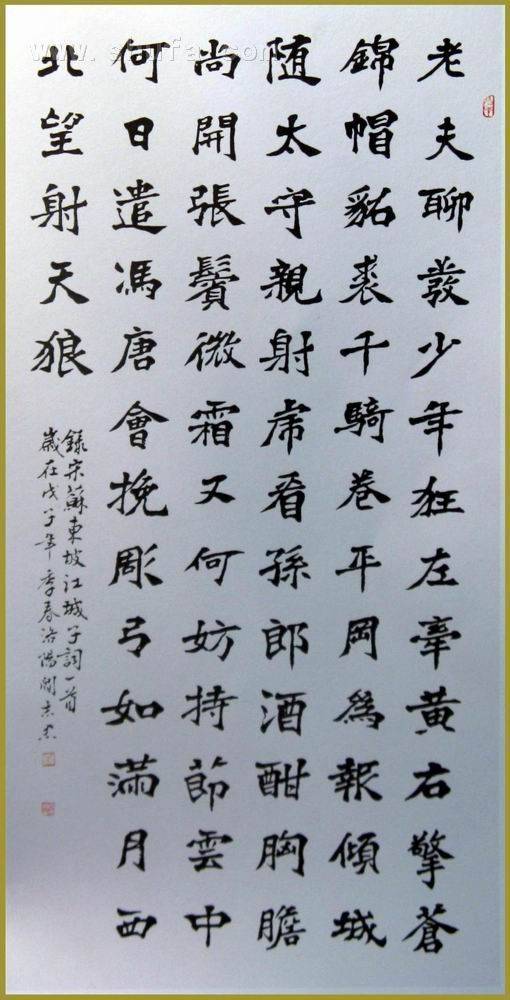 老夫聊發少年狂左牽黄右擎蒼
錦帽貂裘千騎卷平岡爲報傾城
随太守親射虎看孫郎酒酣胸膽
尚開張鬢微霜又何妨持節雲中
何日遣馮唐會挽彫弓如滿月西
北望射天狼
録宋蘇東坡江城子詞一首
歲在戊子年季春洛陽